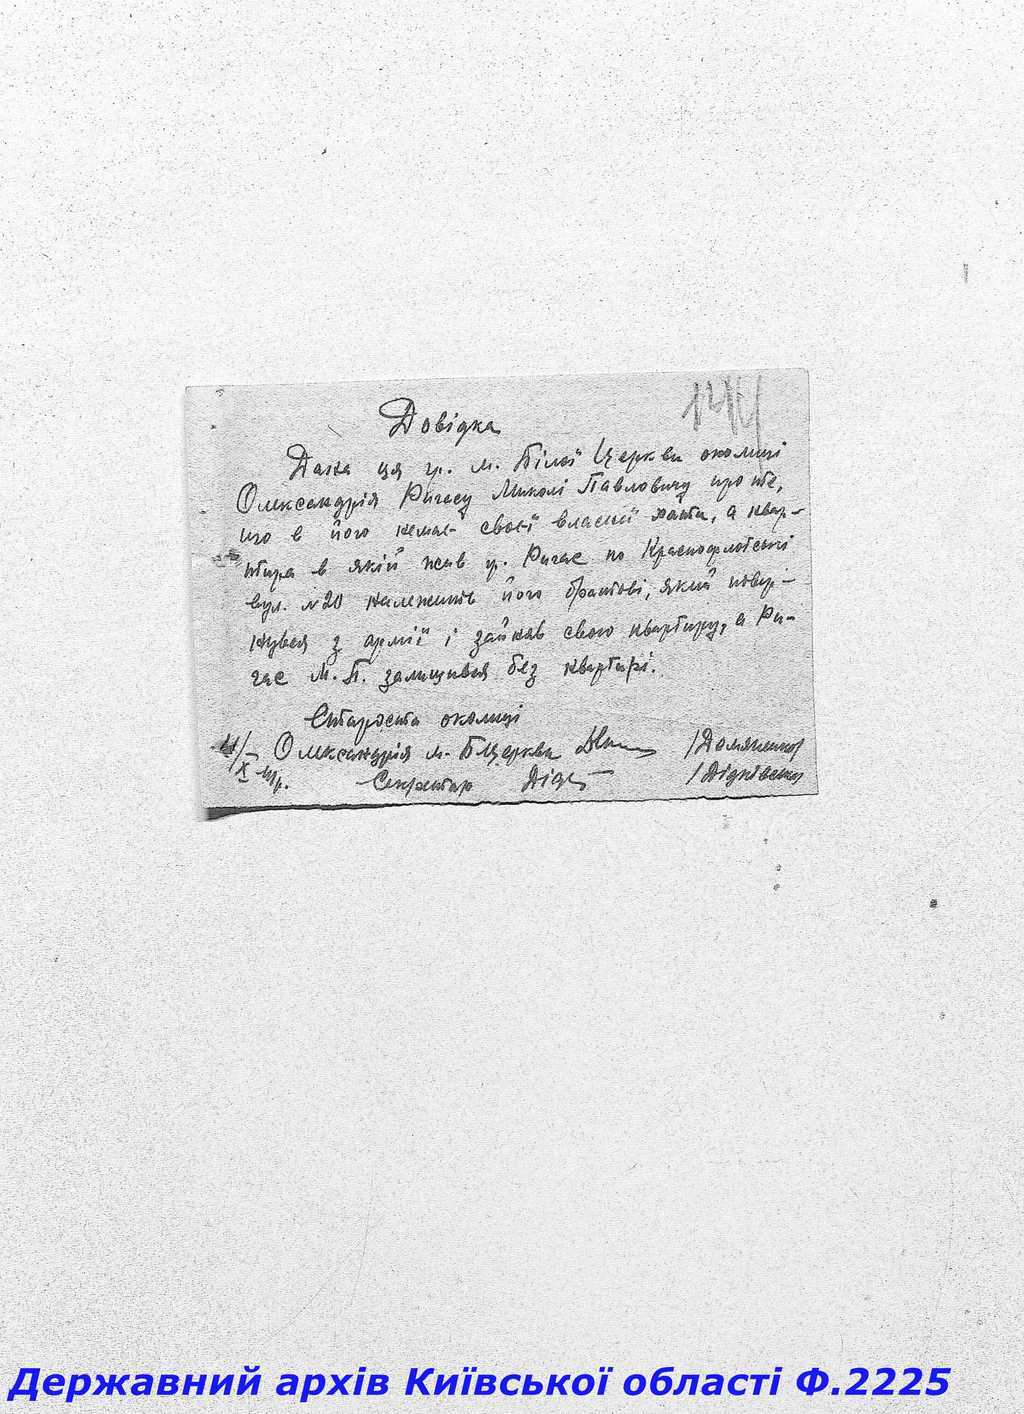 144
Довідка
Дана ця гр. м. Білої Церкви околиці
Олександрія Ригасу Миколі Павловичу про те,
що в його немає своєї власнії хати, а квар-
тира в якій жив гр. Ригас по Краснофлотській
вул. №20 належить його братові, який повер-
нувся з армії і зайняв свою квартиру, а Ри-
гас М. П. залишився без квартирі.
Староста околиці
Олександрія м. Б Церкви /Домяненко/
11/X 41р. Секретар /Дідківська/
Державний архів Київської області Ф.2225